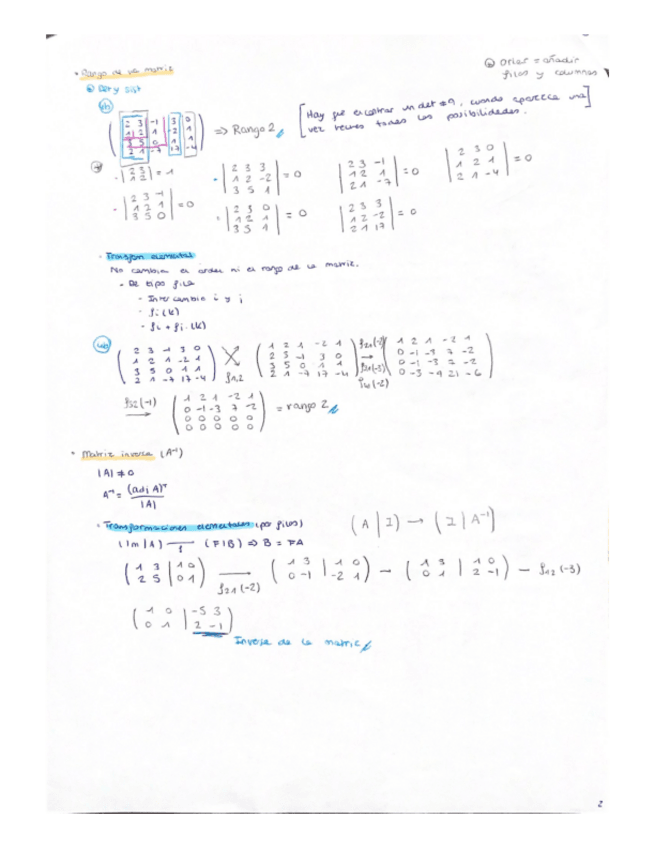 • Rango de una matriz
* Orlar = añadir
filas y columnas
Det y sist
( 2 3 -1 3 0
1 2 1 -2 1
3 5 0 1 1
2 1 -7 17 -4 ) => Rango 2
[Hay que encontrar un det ≠ 0, cuando aparece una
vez vemos todas las posibilidades.]
• | 2 3
1 2 | = 1
• | 2 3 3
1 2 -2
3 5 1 | = 0
| 2 3 -1
1 2 1
2 1 -7 | = 0
| 2 3 0
1 2 1
2 1 -4 | = 0
• | 2 3 -1
1 2 1
3 5 0 | = 0
• | 2 3 0
1 2 1
3 5 1 | = 0
| 2 3 3
1 2 -2
2 1 17 | = 0
• Transfom elemental
No cambian el orden ni el rango de la matriz.
• De tipo fila
- Intercambio i y j
- fi (k)
- fi + fj · (k)
( 2 3 -1 3 0
1 2 1 -2 1
3 5 0 1 1
2 1 -7 17 -4 )
f1,2
( 1 2 1 -2 1
2 3 -1 3 0
3 5 0 1 1
2 1 -7 17 -4 )
f21(-2)
→
f31(-3)
f41(-2)
( 1 2 1 -2 1
0 -1 -3 7 -2
0 -1 -3 7 -2
0 -3 -9 21 -6 )
f32(-1)
→
( 1 2 1 -2 1
0 -1 -3 7 -2
0 0 0 0 0
0 0 0 0 0 ) = rango 2
• Matriz inversa (A⁻¹)
|A| ≠ 0
A⁻¹ = (adj A)ᵀ
|A|
• Transformaciones elementales (por filas)
(A | I) → (I | A⁻¹)
(Im | A) — (F | B) => B = FA
f
( 1 3 | 1 0
2 5 | 0 1 )
→
f21(-2)
( 1 3 | 1 0
0 -1 | -2 1 ) → ( 1 3 | 1 0
0 1 | 2 -1 ) – f12(-3)
( 1 0 | -5 3
0 1 | 2 -1 )
Inversa de la matriz
2